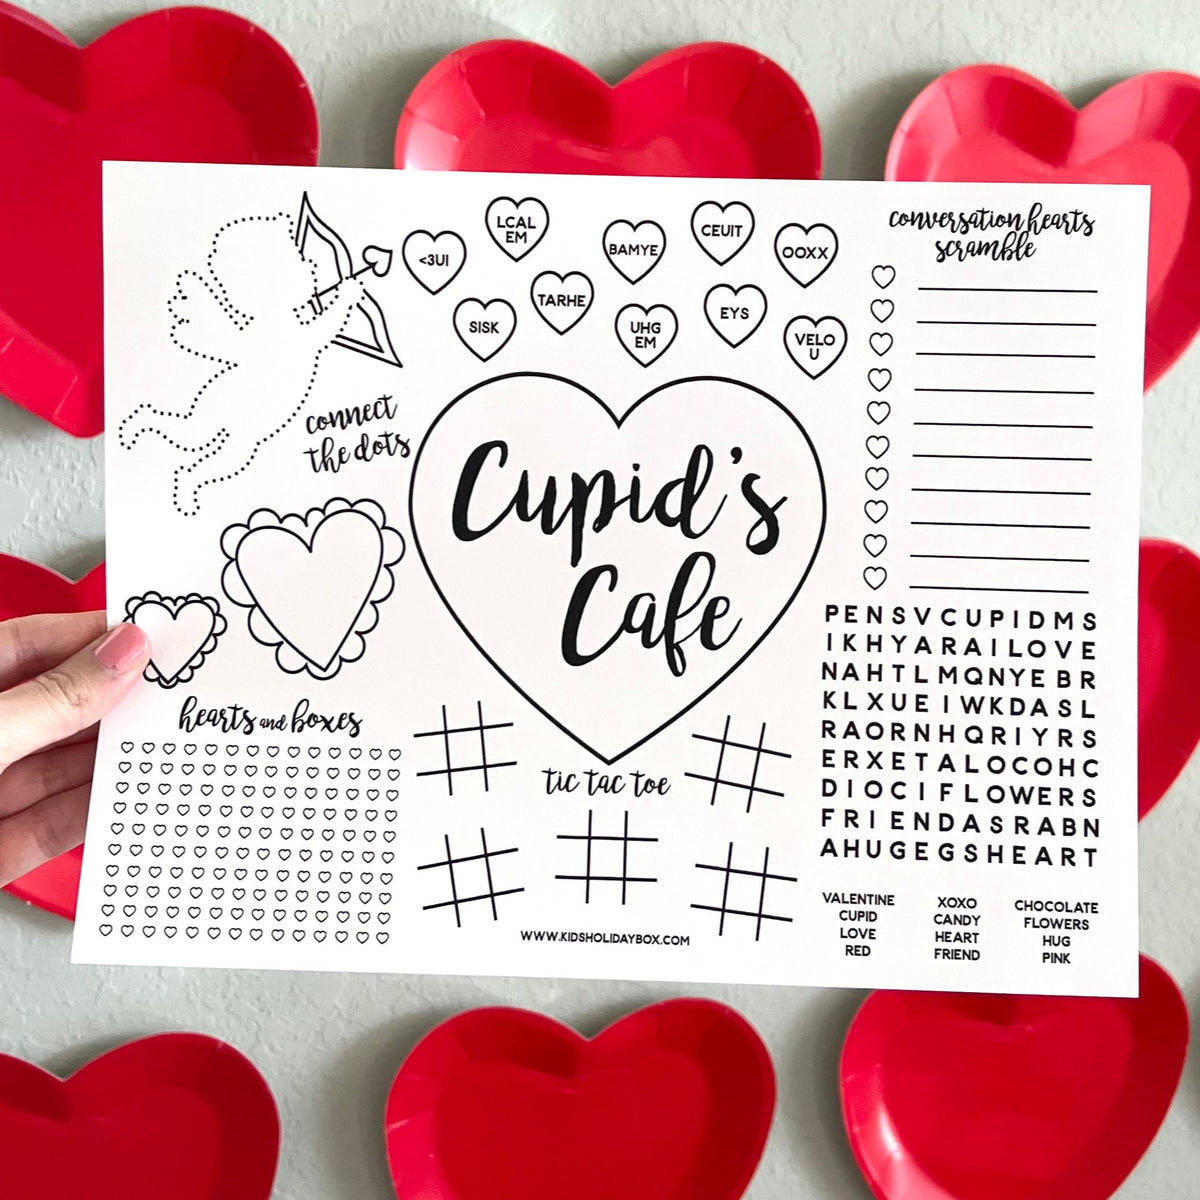 connect
the dots
<3UI
LCAL
EM
BAMYE
CEUIT
OOXX
SISK
TARHE
UHG
EM
EYS
VELO
U
conversation hearts
scramble
Cupid's
Cafe
hearts and boxes
tic tac toe
WWW.KIDSHOLIDAYBOX.COM
PENSVCUPIDMS
IKHYARAILOVE
NAHTLMQNYEBR
KLXUEIWKDASL
RAORNHQRIYRS
ERXETALOCOHC
DIOCIFLOWERS
FRIENDASRABN
AHUGEGSHEART
VALENTINE
CUPID
LOVE
RED
XOXO
CANDY
HEART
FRIEND
CHOCOLATE
FLOWERS
HUG
PINK